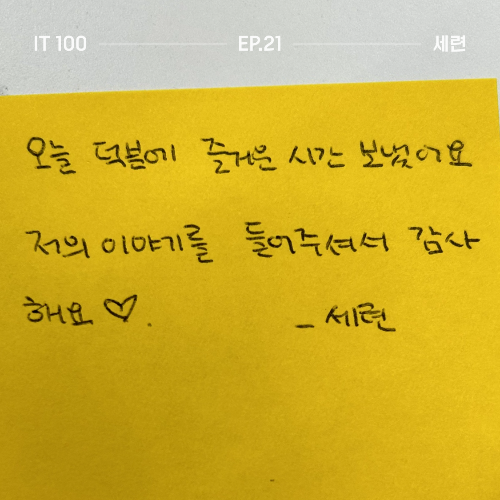 IT 100 EP.21 세련
오늘 덕분에 즐거운 시간 보냈어요
저의 이야기를 들어주셔서 감사
해요 ♡.
- 세련